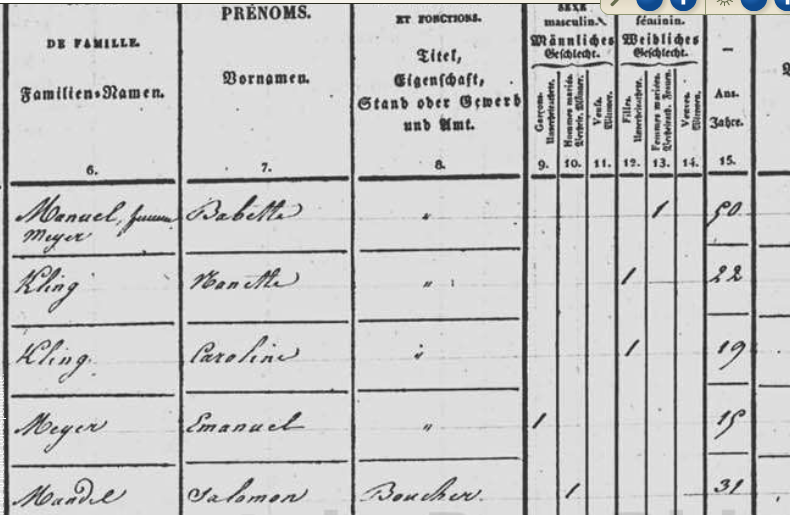 DE FAMILLE.
Familien-Namen.
6.
PRÉNOMS.
Vornamen.
7.
ET FONCTIONS.
Titel,
Eigenschaft,
Stand oder Gewerb
und Amt.
8.
SEXE
masculin.
Männliches
Geschlecht.
féminin.
Weibliches
Geschlecht.
Garçons.
Unverheirathete.
9.
Hommes mariés.
Verheir. Männer.
10.
Veufs.
Wittwer.
11.
Filles.
Unverheirathete.
12.
Femmes mariées.
Verheirath. Frauen.
13.
Veuves.
Wittwen.
14.
Ans.
Jahre.
15.
Manuel, femme Babette " 1 50
Meyer
Kling Nanette " 1 22
Kling. Caroline " 1 19
Meyer Emanuel " 1 15
Mandel Salomon Boucher. 1 31